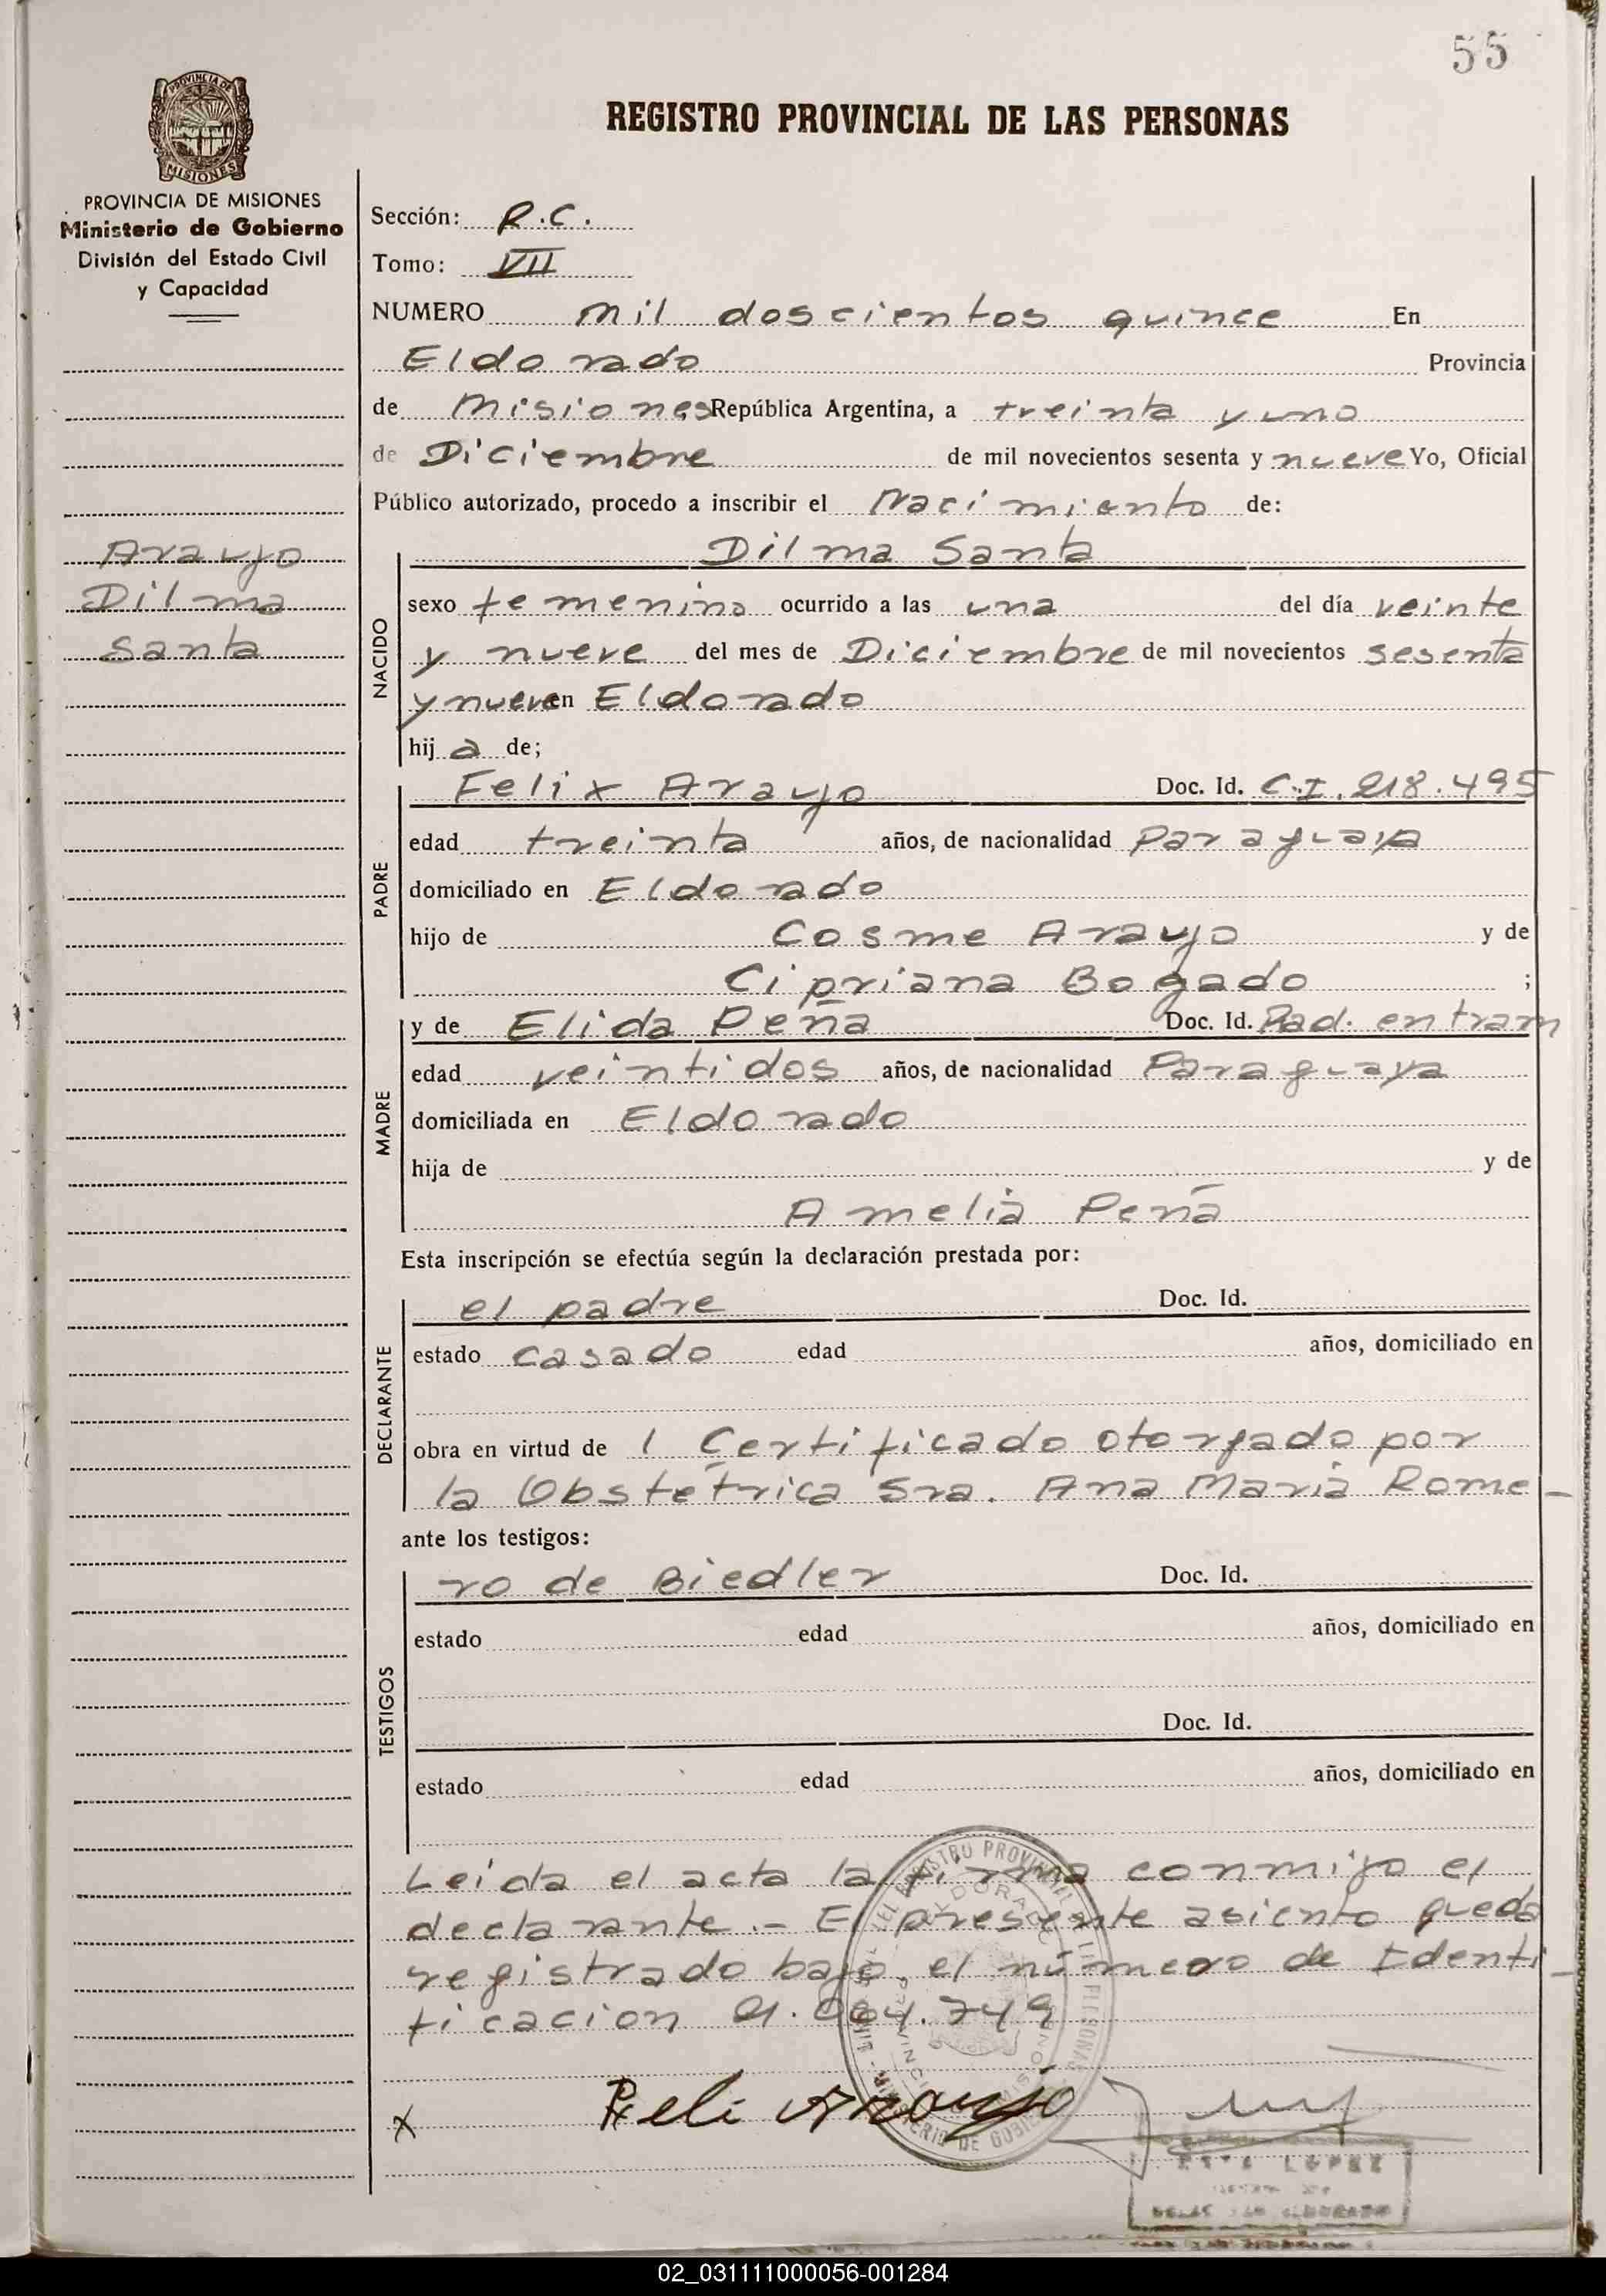 55
REGISTRO PROVINCIAL DE LAS PERSONAS
PROVINCIA DE MISIONES
Ministerio de Gobierno
División del Estado Civil
y Capacidad
Araujo
Dilma
Santa
Sección: R.C.
Tomo: VII
NUMERO mil doscientos quince En
Eldorado Provincia
de Misiones República Argentina, a treinta y uno
de Diciembre de mil novecientos sesenta y nueve Yo, Oficial
Público autorizado, procedo a inscribir el Nacimiento de:
Dilma Santa
NACIDO
sexo femenino ocurrido a las una del día veinte
y nueve del mes de Diciembre de mil novecientos sesenta
y nueve en Eldorado
hij a de;
PADRE
Felix Araujo Doc. Id. C.I. 218.495
edad treinta años, de nacionalidad Paraguaya
domiciliado en Eldorado
hijo de Cosme Araujo y de
Cipriana Bogado ;
MADRE
y de Elida Peña Doc. Id. Rad. en tram
edad veintidos años, de nacionalidad Paraguaya
domiciliada en Eldorado
hija de y de
Amelia Peña
Esta inscripción se efectúa según la declaración prestada por:
DECLARANTE
el padre Doc. Id.
estado casado edad años, domiciliado en
obra en virtud de 1 Certificado otorgado por
la Obstétrica Sra. Ana Maria Rome-
ante los testigos:
TESTIGOS
ro de Biedler Doc. Id.
estado edad años, domiciliado en
Doc. Id.
estado edad años, domiciliado en
Leida el acta la firma conmigo el
declarante.- El presente asiento queda
registrado bajo el número de Identi-
ficacion 21.004.749
x Feli Araujo
LOPEZ
02_031111000056-001284